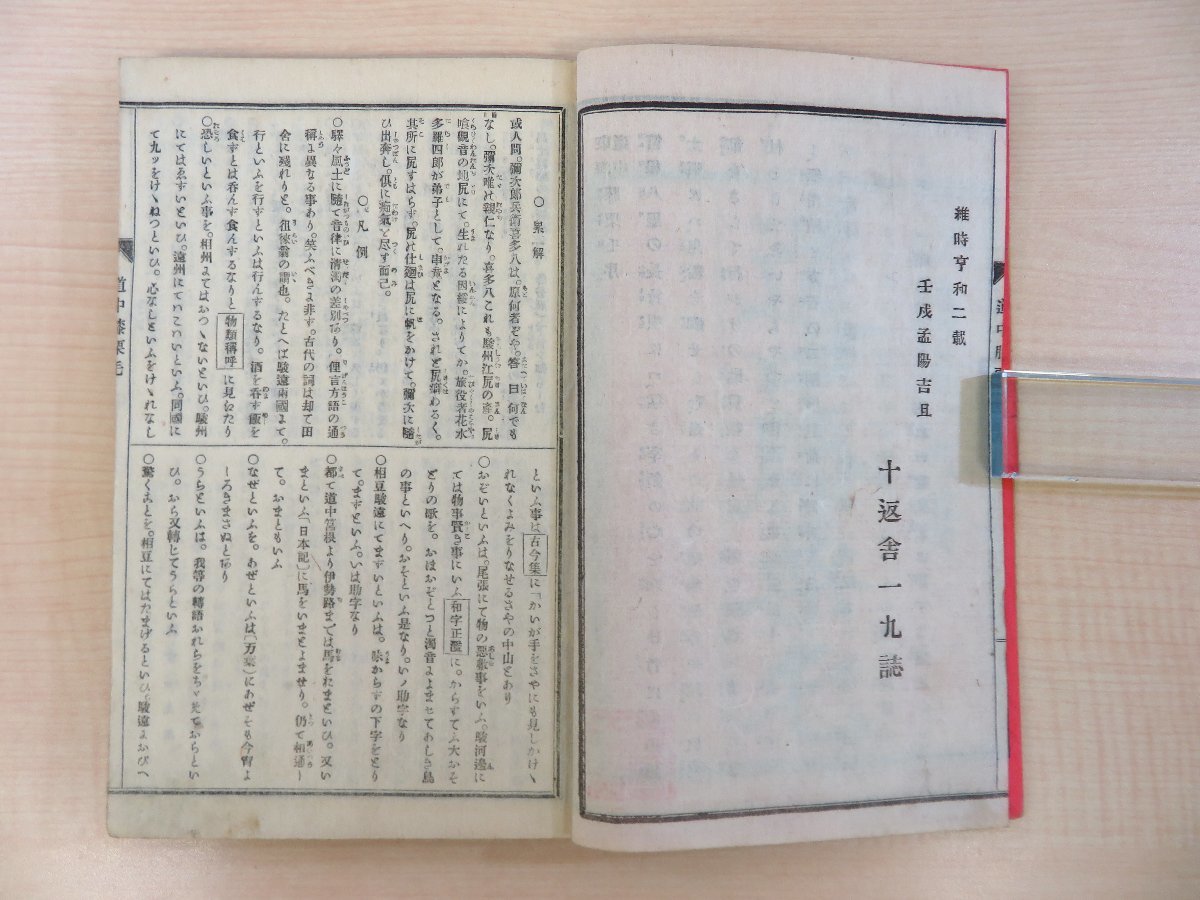 維時亨和二載
壬戌孟陽吉旦
十返舎一九誌
道中膝栗毛
○累解
或人問。彌次郎兵衛喜多八は。原何者ぞや。答曰何でも
なし。彌次唯の親仁なり。喜多八これも駿州江尻の産。尻
喰觀音の地尻にて。生れたる因縁によりてか。旅役者花水
多羅四郎が弟子として。串童となる。されど尻癖わるく。
其所に尻すはらず。尻に仕廻は尻に帆をかけて。彌次に隨
ひ出奔し。倶に戯氣を尽す而己。
○凡例
驛々風土に隨て音律に清濁の差別あり。俚言方語の通
稱よ異なる事あり。笑ふべきよ非す。古代の詞は却て田
舍に殘れりと。徂徠翁の謂也。たとへば駿遠兩國よて。
行といふを行すといふは行んするなり。酒を呑す飯を
食すとは呑んす食んするなりと物類稱呼に見えたり
○恐しいといふ事を。相州よてはおつゝないといひ。駿州
にてはゑすいといひ。遠州にていこいいといふ。同國に
て九ッをけゝねつといひ。心なしといふをけゝれなし
といふ事は古今集に「かいが手をさやにも見しかけゝ
れなくよみをりなせるさやの中山とあり
○おぞいといふは。尾張にて物の惡敷事をいふ。駿河邊に
ては物事賢き事にいふ和字正濫に。からすてふ大おそ
どりの歌を。おほおぞとつと濁音よよませてあしき鳥
の事といへり。おそといふ是なり。いノ助字なり
○相豆駿遠にてまずいといふは。味からすの下字をとり
て。まずといふ。いは助字なり
○都て道中筥根より伊勢路までは馬をおまといひ。又い
まといふ「日本記」に馬をいまとよませり。仍て相通し
て。おまともいふ
○なぜといふを。あぜといふは「万葉」にあぜそも今宵よ
しろきまさぬとあり
○うらといふは。我等の轉語おれらをちゞめておらとい
ひ。おら又轉じてうらといふ
○驚くよとを。相豆にてはたまげるといひ。駿遠よおびへ
道中膝栗毛